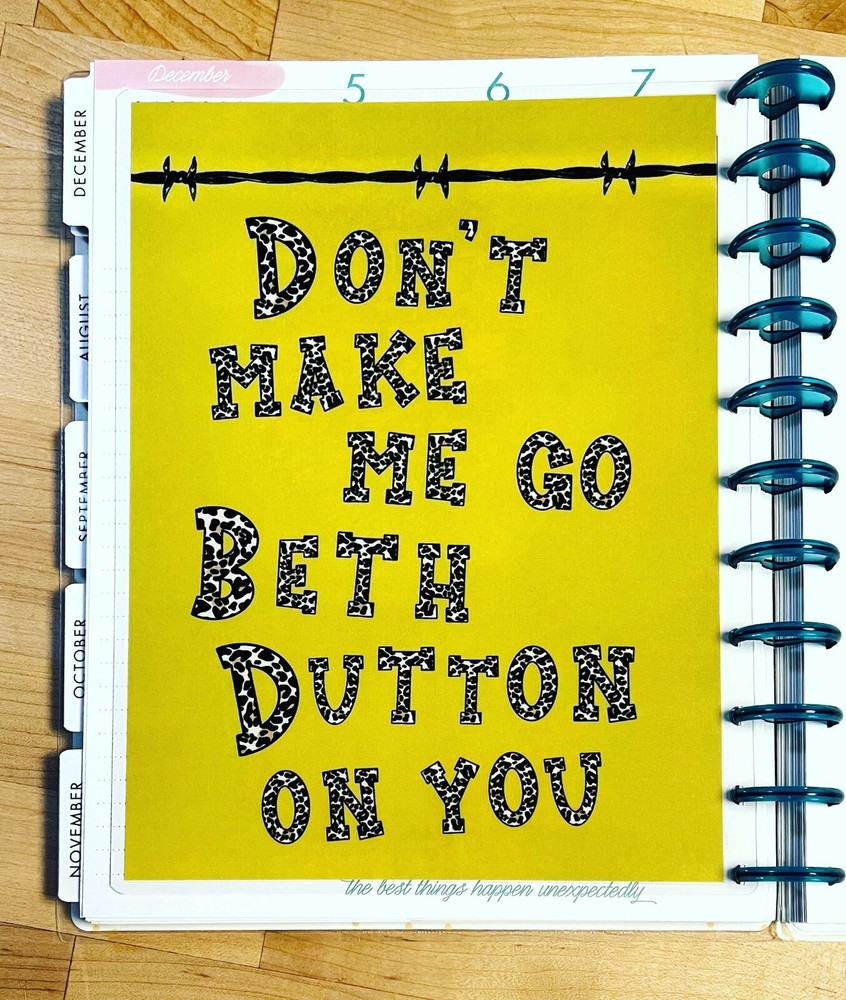 December
5 6 7
DECEMBER
AUGUST
SEPTEMBER
OCTOBER
NOVEMBER
DON'T
MAKE
ME GO
BETH
DUTTON
ON YOU
the best things happen unexpectedly